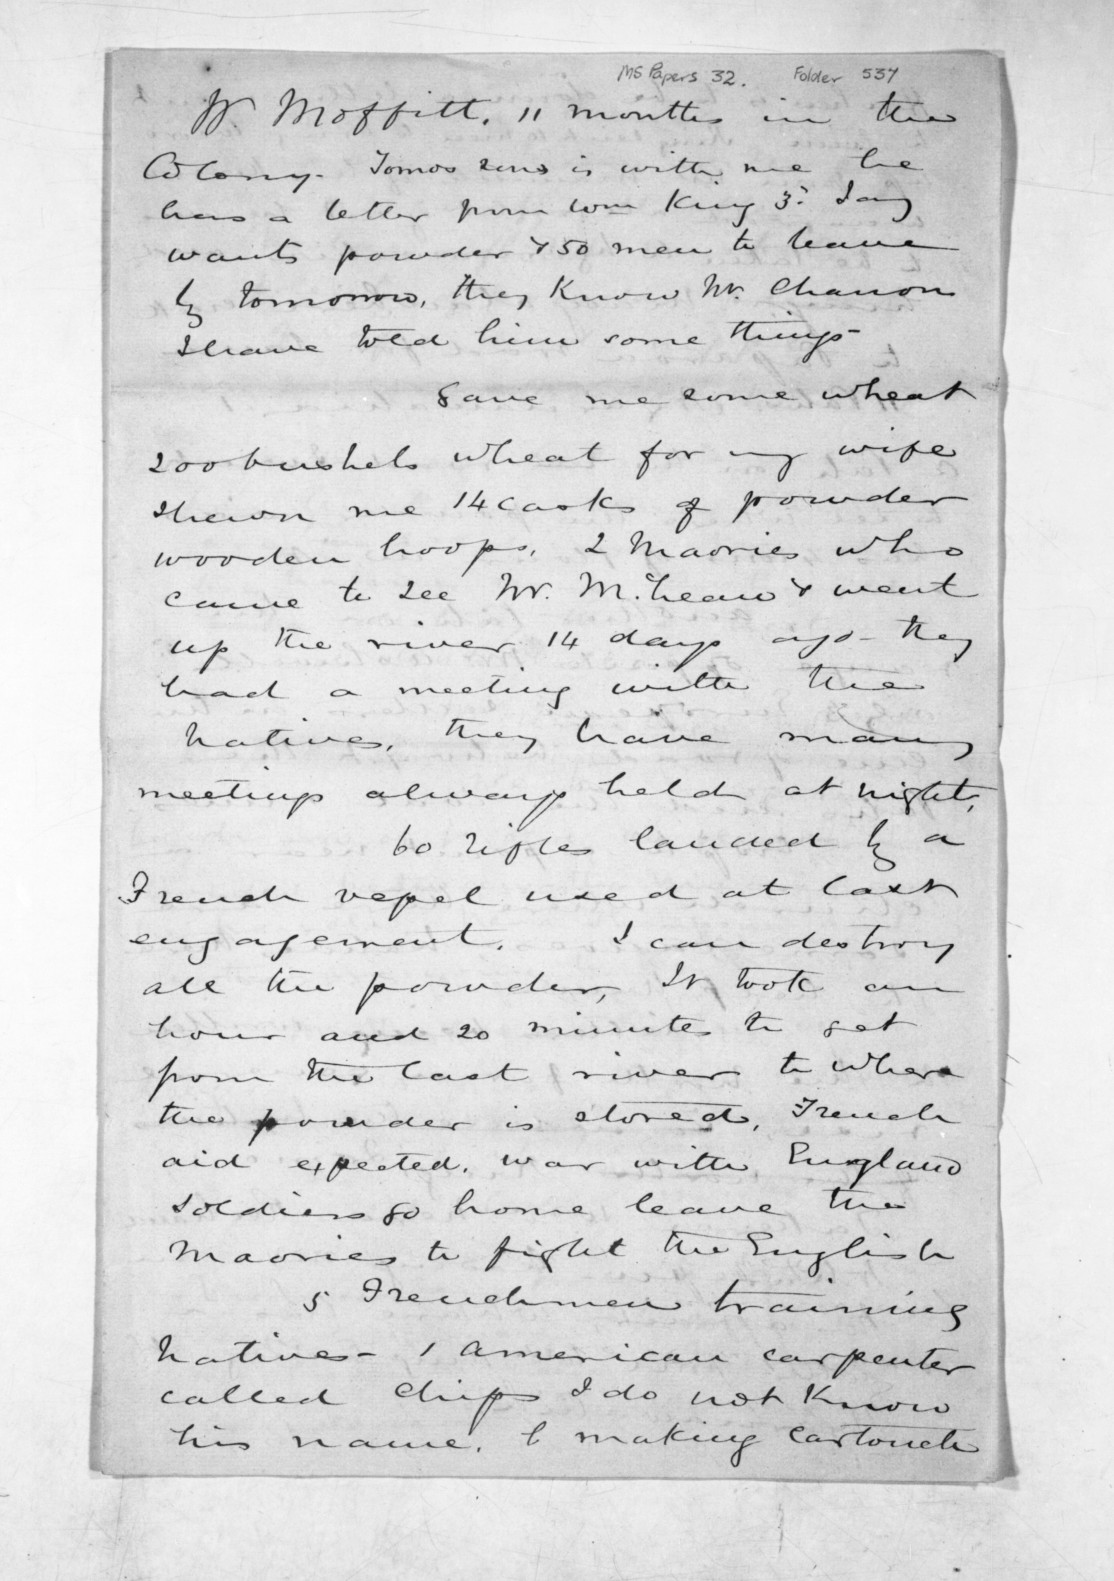 MS Papers 32. Folder 537
W. Moffitt. 11 months in the
Colony - is with me he
has a letter from Wm King 3rd
wants powder & 50 men to leave
by tomorrow, they know Mr.
I have told him some things -
Gave me some wheat
200 bushels wheat for my wife
Shewn me 14 casks of powder
wooden hoops. 2 Maories who
came to see Mr. McLean & went
up the river 14 days ago - they
had a meeting with the
Natives. they have many
meetings always held at night.
60 rifles landed by a
French vessel used at last
engagement. I can destroy
all the powder, It took an
hour and 20 minutes to get
from the last river to where
the powder is stored. French
aid expected. war with England
Soldiers go home leave the
Maories to fight the English
5 Frenchmen training
Natives - 1 American carpenter
called Chips I do not know
his name. 6 making cartouch